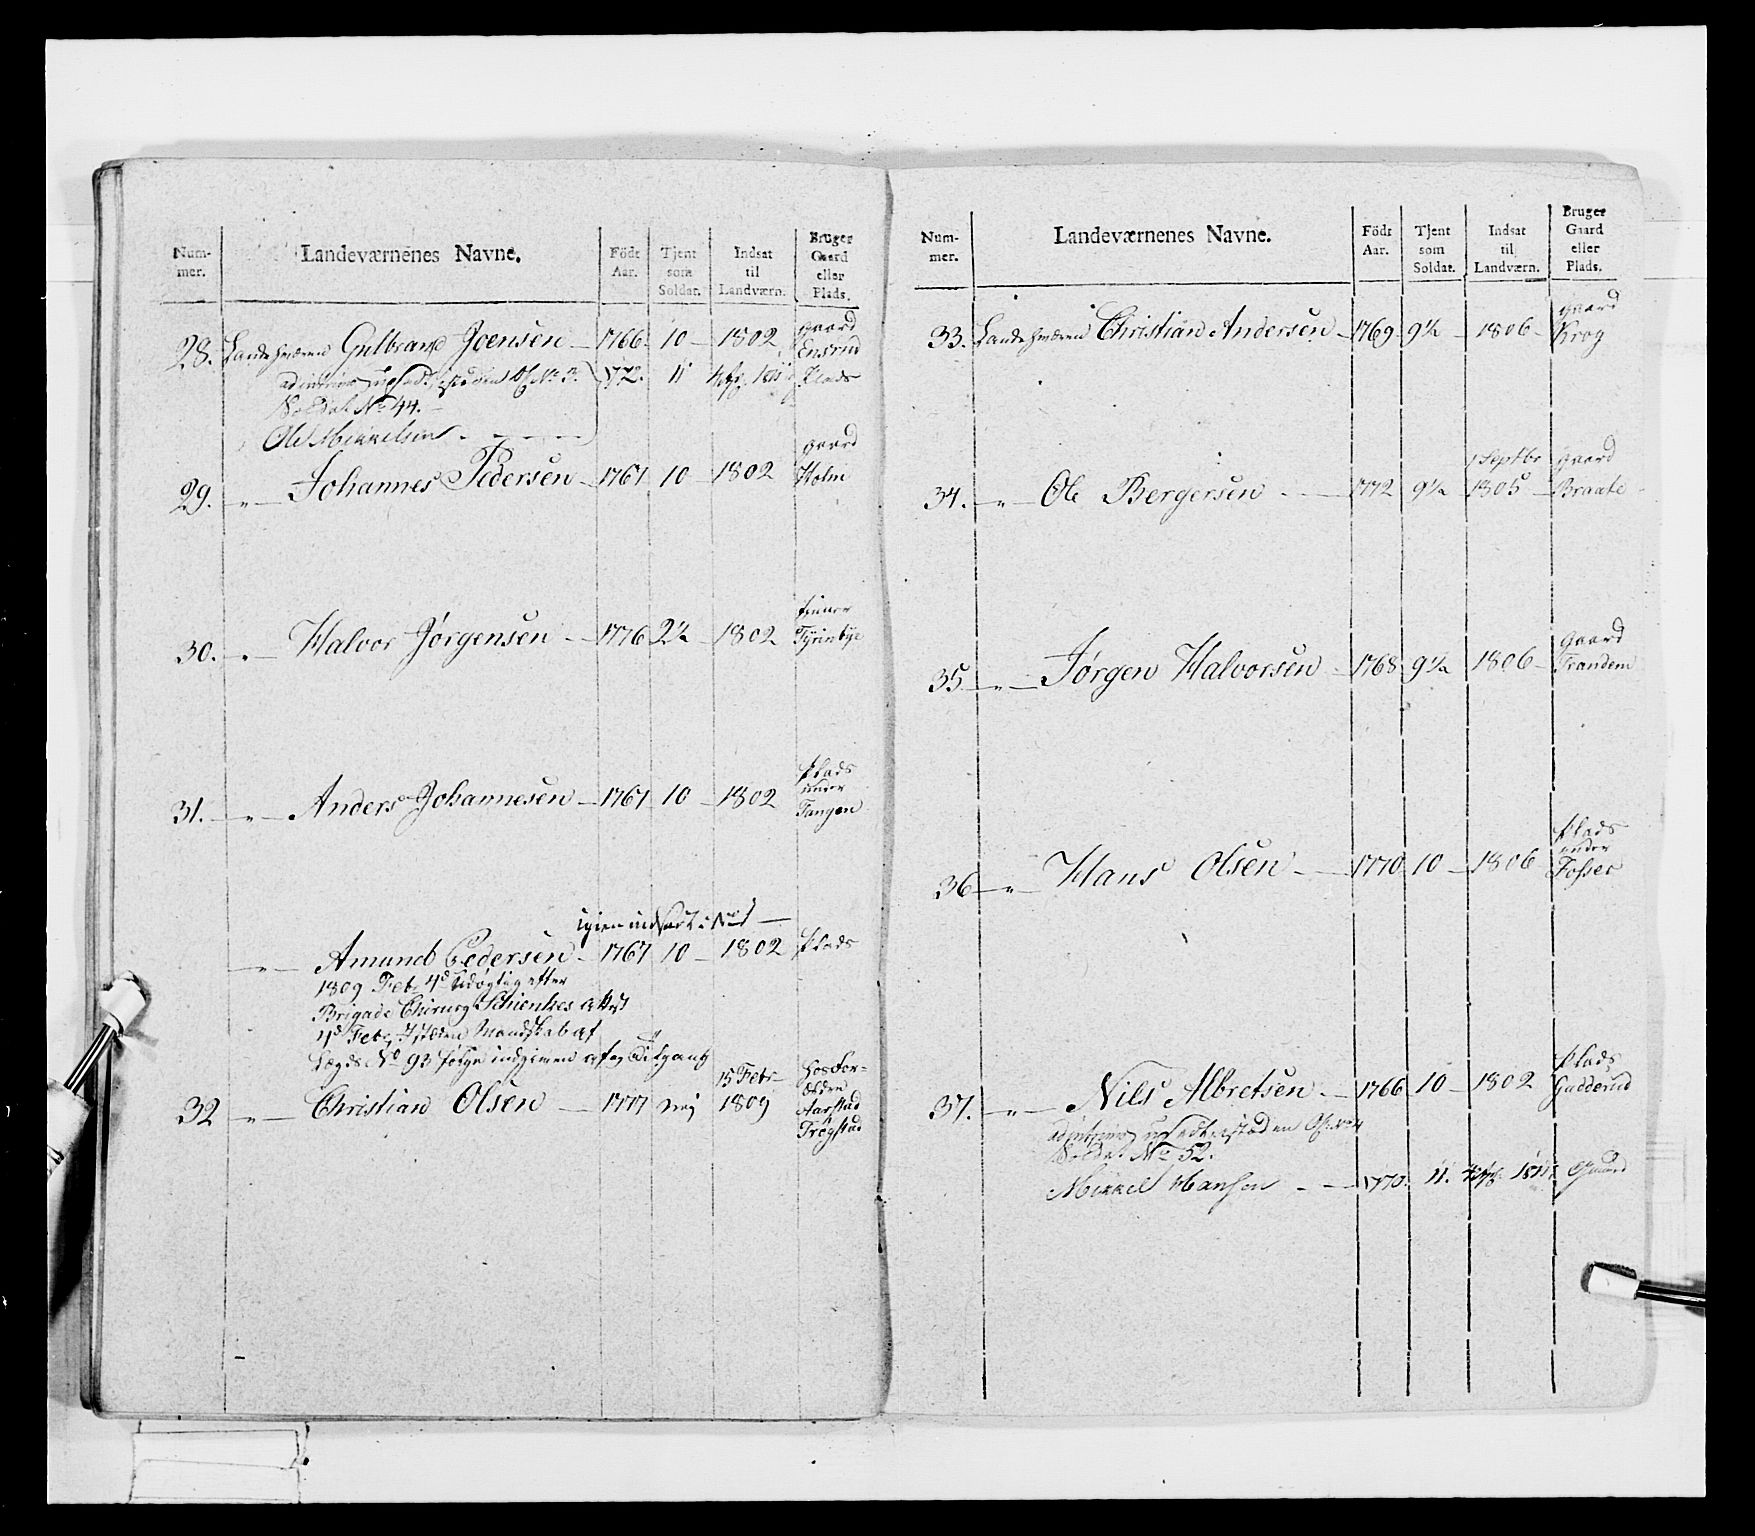 Num-
mer.
Landeværnenes Navne.
Födt
Aar.
Tjent
som
Soldat.
Indsat
til
Landværn.
Bruger
Gaard
eller
Plads.
28. Landeværn Gulbrand Joensen — 1766. 10 — 1802 gaard Ensrud
1772. 11 Plads
Soldat No 44. —
Ole Mikkelsen
29. — " — Johannes Pedersen — 1767 10 — 1802 gaard Holm
30. — " — Halvor Jørgensen — 1776 2½ — 1802
31. — " — Anders Johannesen — 1767 10 — 1802 Plads under Tangen
igien indsat i No 1 —
— " — Amund Pedersen — 1767 10 — 1802 Plads
1809 Febr 4d Udøgtig efter
Brigade Chirurg Schientzes Attest
4d Febr
Lægds No 93 følge
32 — " — Christian Olsen — 1777 nej 15 Febr 1809 hos For=
ældre
Aarstad
Trøgstad
Num-
mer.
Landeværnenes Navne.
Födt
Aar.
Tjent
som
Soldat.
Indsat
til
Landværn.
Bruger
Gaard
eller
Plads.
33. Landeværn Christian Andersen — 1769 9½ — 1806 — gaard Krog
34. — " — Ole Bergersen — 1772 9½ 1 Septbr 1805 — gaard Braate
35 — " — Jørgen Halvorsen — 1768 9½ 1806 — gaard Frandem
36 — " — Hans Olsen — 1770 10 — 1806 Plads under Fosser
37. — " — Nils Albretsen — 1766 10 — 1802 Plads Gudderud
Soldat No 52.
Mikkel Hansen — — 1770. 11. Gaard